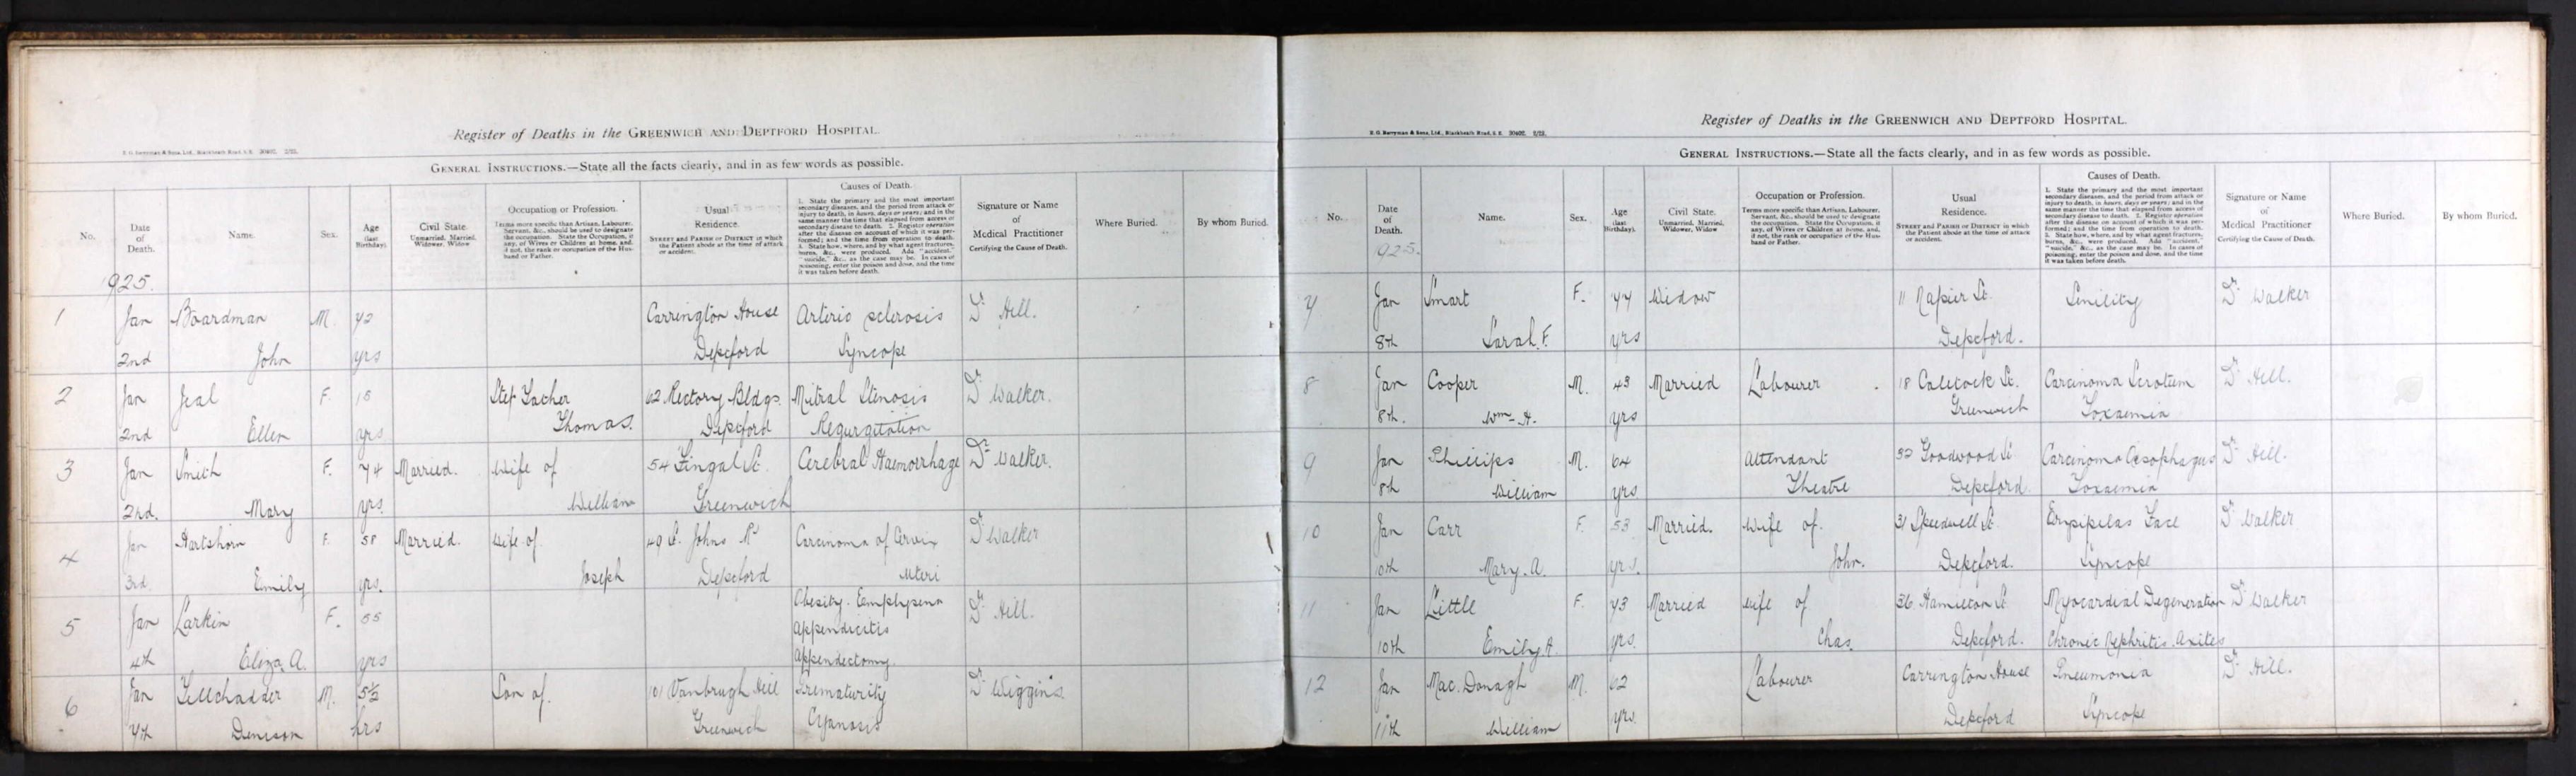 Register of Deaths in the GREENWICH AND DEPTFORD HOSPITAL.
GENERAL INSTRUCTIONS.—State all the facts clearly, and in as few words as possible.
No.
Date of Death.
Name.
Sex.
Age (last Birthday).
Civil State. Unmarried, Married, Widower, Widow
Occupation or Profession. Terms more specific than Artisan, Labourer, Servant, &c., should be used to designate the occupation. State the Occupation, if any, of Wives or Children at home, and, if not, the rank or occupation of the Husband or Father.
Usual Residence. STREET and PARISH or DISTRICT in which the Patient abode at the time of attack or accident.
Causes of Death. 1. State the primary and the most important secondary diseases, and the period from attack or injury to death, in hours, days or years; and in the same manner the time that elapsed from access of secondary disease to death. 2. Register operation after the disease on account of which it was performed; and the time from operation to death. 3. State how, where, and by what agent fractures, burns, &c., were produced. Add "accident," "suicide," &c., as the case may be. In cases of poisoning, enter the poison and dose, and the time it was taken before death.
Signature or Name of Medical Practitioner Certifying the Cause of Death.
Where Buried.
By whom Buried.
925.
1 Jan Boardman M. 72 Carrington House Arterio sclerosis Dr Hill.
2nd John yrs Deptford Syncope
2 Jan Jeal F. 18 Step Father 62 Rectory Bldgs. Mitral Stenosis Dr Walker.
2nd Ellen yrs Thomas. Deptford Regurgitation
3 Jan Smith F. 74 Married. Wife of 54 Fingal St. Cerebral Haemorrhage Dr Walker.
2nd. Mary yrs. William Greenwich
4 Jan Hartshorn F. 58 Married. Wife of 40 St. Johns Rd Carcinoma of Cervix Dr Walker
3rd Emily yrs. Joseph Deptford Uteri
5 Jan Larkin F. 55 Obesity. Emphysema Dr Hill.
Appendicitis
4th Eliza A. yrs Appendectomy.
6 Jan M. 5½ Son of. 101 Vanbrugh Hill Prematurity Dr Wiggins
7th Denison hrs Greenwich Cyanosis
Register of Deaths in the GREENWICH AND DEPTFORD HOSPITAL.
E. G. Berryman & Sons, Ltd., Blackheath Road, S.E.
GENERAL INSTRUCTIONS.—State all the facts clearly, and in as few words as possible.
No.
Date of Death.
Name.
Sex.
Age (last Birthday).
Civil State. Unmarried, Married, Widower, Widow
Occupation or Profession. Terms more specific than Artisan, Labourer, Servant, &c., should be used to designate the occupation. State the Occupation, if any, of Wives or Children at home, and, if not, the rank or occupation of the Husband or Father.
Usual Residence. STREET and PARISH or DISTRICT in which the Patient abode at the time of attack or accident.
Causes of Death. 1. State the primary and the most important secondary diseases, and the period from attack or injury to death, in hours, days or years; and in the same manner the time that elapsed from access of secondary disease to death. 2. Register operation after the disease on account of which it was performed; and the time from operation to death. 3. State how, where, and by what agent fractures, burns, &c., were produced. Add "accident," "suicide," &c., as the case may be. In cases of poisoning, enter the poison and dose, and the time it was taken before death.
Signature or Name of Medical Practitioner Certifying the Cause of Death.
Where Buried.
By whom Buried.
925.
7 Jan Smart F. 77 Widow 11 Napier St. Senility Dr Walker
8th Sarah. F. yrs Deptford.
8 Jan Cooper M. 43 Married Labourer 18 Calstock St. Carcinoma Scrotum Dr Hill.
8th. Wm. H. yrs Greenwich Toxaemia
9 Jan Phillips M. 64 Attendant 32 Goodwood St. Carcinoma Oesophagus Dr Hill.
8th William yrs Theatre Deptford Toxaemia
10 Jan Carr F. 53 Married. Wife of. 31 Speedwell St. Erysipelas Face Dr Walker
10th Mary. A. yrs. John. Deptford. Syncope
11 Jan Little F. 73 Married Wife of 36. Hamilton St. Myocardial Degeneration Dr Walker
10th Emily A. yrs. Chas. Deptford. Chronic Nephritis. Asites
12 Jan Mac. Donagh M. 62 Labourer Carrington House Pneumonia Dr Hill.
11th William yrs. Deptford Syncope